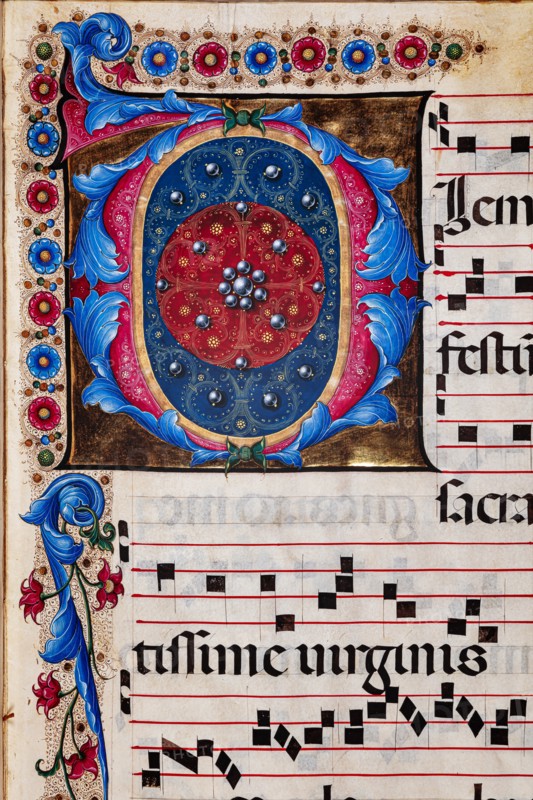 DIem
festū
sacra
tissime uirginis